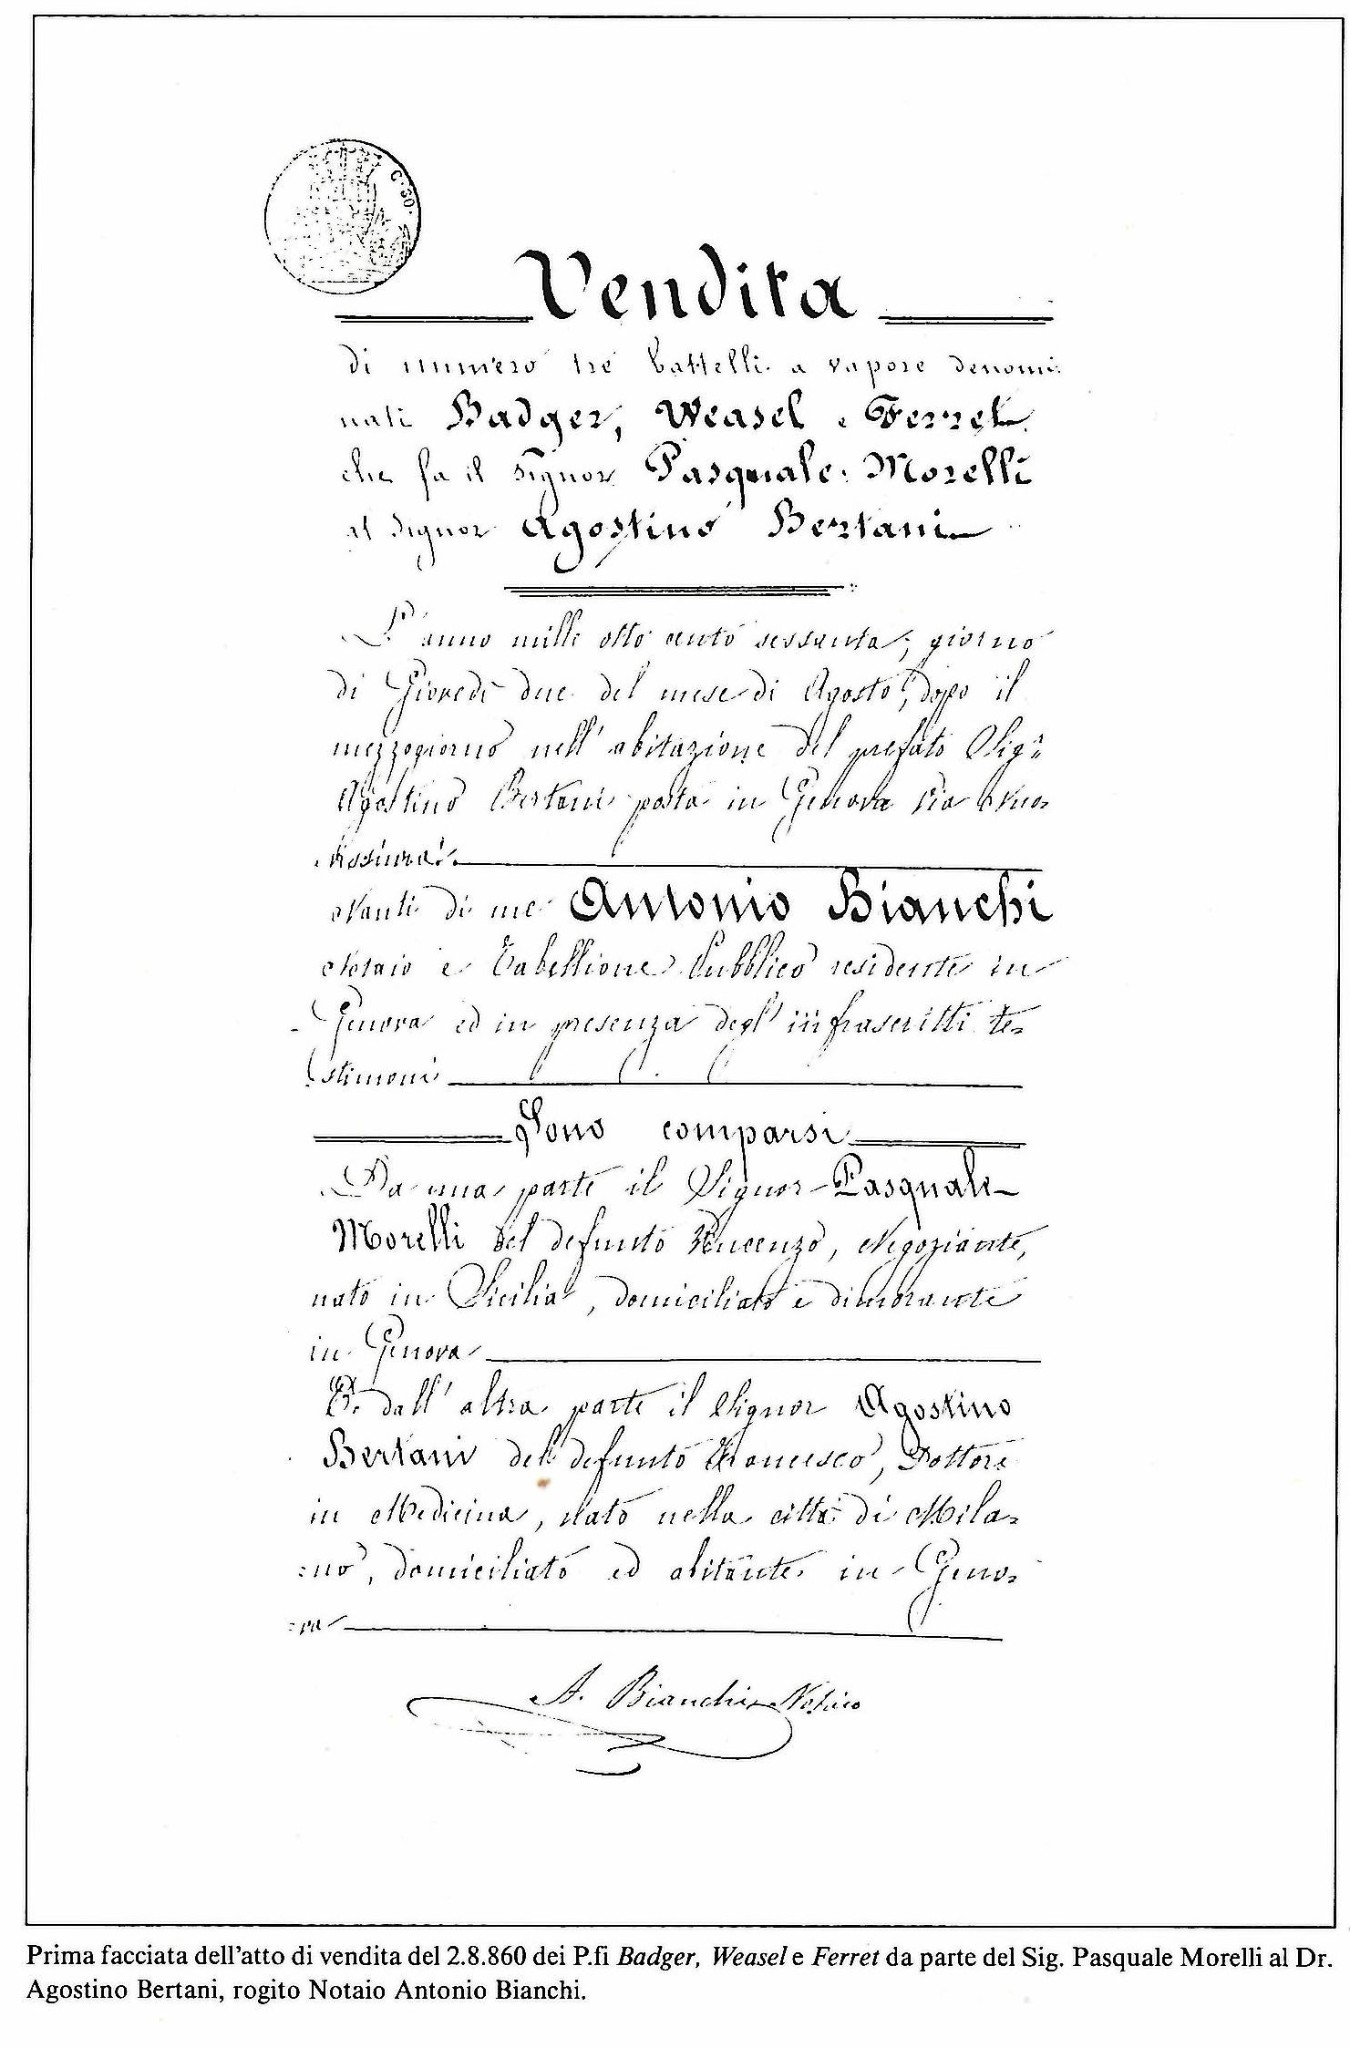 C. 30.
Vendita
di numero tre battelli a vapore denomi
nati Badger, Weasel e Ferret
che fa il signor Pasquale Morelli
al signor Agostino Bertani
L'anno mille otto cento sessanta, giorno
di Giovedì due del mese di Agosto, dopo il
mezzogiorno nell'abitazione del prefato Sig.r
Agostino Bertani posta in Genova via Nuo=
vissima.
Avanti di me Antonio Bianchi
Notaio e Tabellione Pubblico residente in
Genova ed in presenza degl'infrascritti te=
stimoni
Sono comparsi
Da una parte il Signor Pasquale
Morelli del defunto Vincenzo, Negoziante,
nato in Sicilia, domiciliato e dimorante
in Genova
E dall'altra parte il Signor Agostino
Bertani del defunto Francesco, Dottore
in Medicina, nato nella città di Mila=
=no, domiciliato ed abitante in Geno=
=va
A. Bianchi Notaio
Prima facciata dell'atto di vendita del 2.8.860 dei P.fi Badger, Weasel e Ferret da parte del Sig. Pasquale Morelli al Dr.
Agostino Bertani, rogito Notaio Antonio Bianchi.